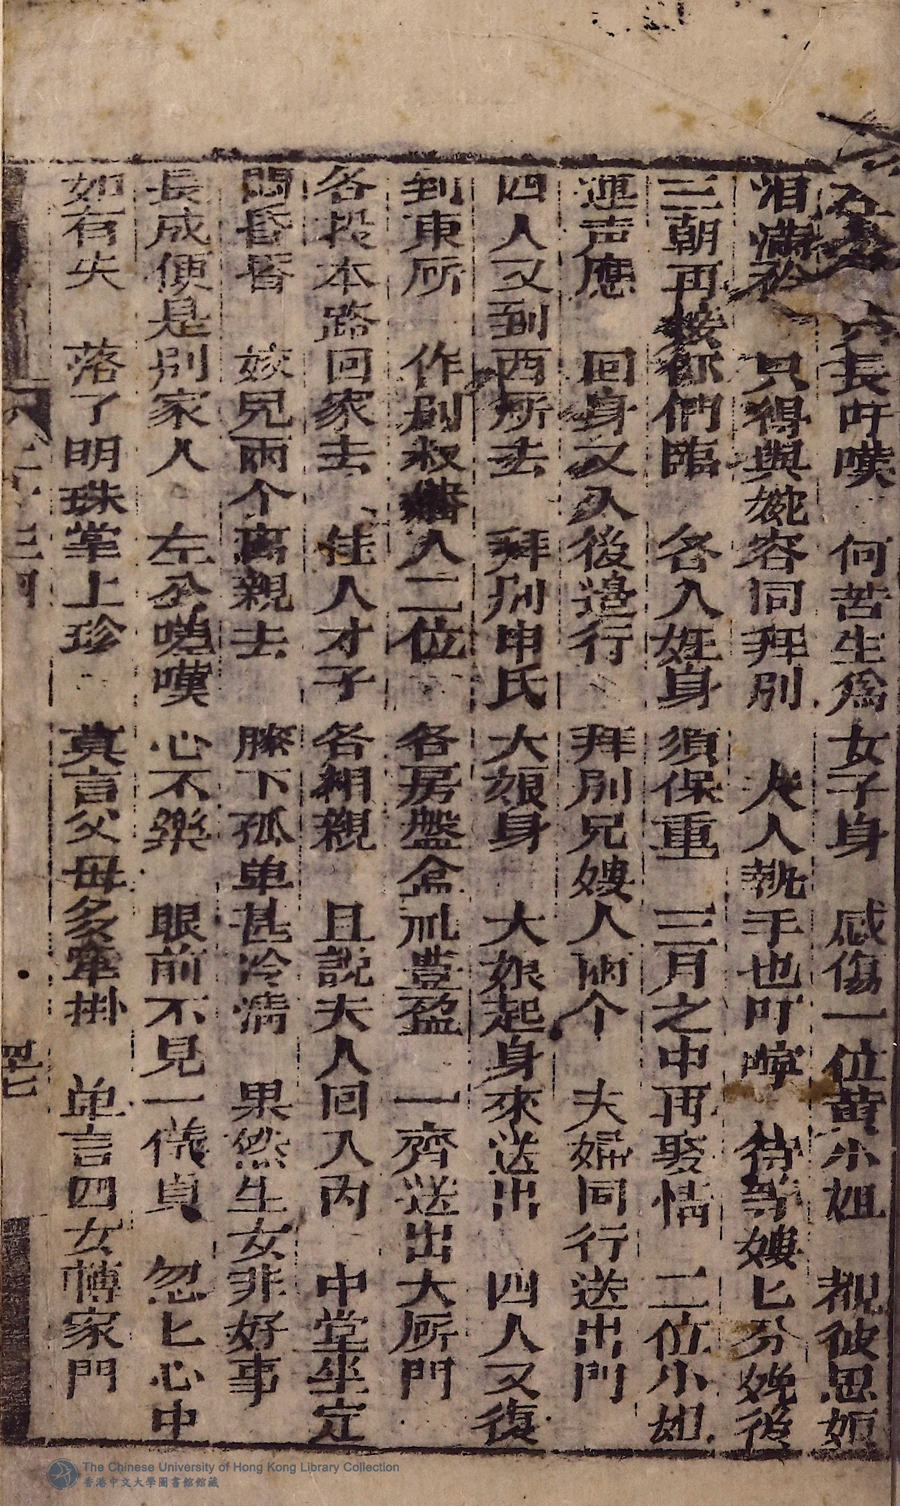 六長吁嘆　何苦生為女子身　感傷一位黃小姐　覩彼思姬
泪滿　只得與婉容同拜別　夫人執手也叮嚀　待等嫂匕分娩後
三朝再接你們臨　各入姪身須保重　三月之中再娶情　二位小姐
連声應　回身又入後邉行　拜別兄嫂人兩个　夫婦同行送出門
四人又到西所去　拜别申氏大娘身　大娘起身來送出　四人又復
到東所　作别叔　人二位　各房盤盒礼豊盈　一齊送出大所門
各投本路回家去　佳人才子各相親　且說夫人回入内　中堂坐定
悶昏昏　姣兒兩个离親去　膝下孤单甚冷清　果然生女非好事
長成便是别家人　左公嗟嘆心不樂　眼前不見一儀貞　忽匕心中
如有失　落了明珠掌上珍　莫言父母多牽掛　单言四女慱家門
四七
The Chinese University of Hong Kong Library Collection
香港中文大學圖書館館藏